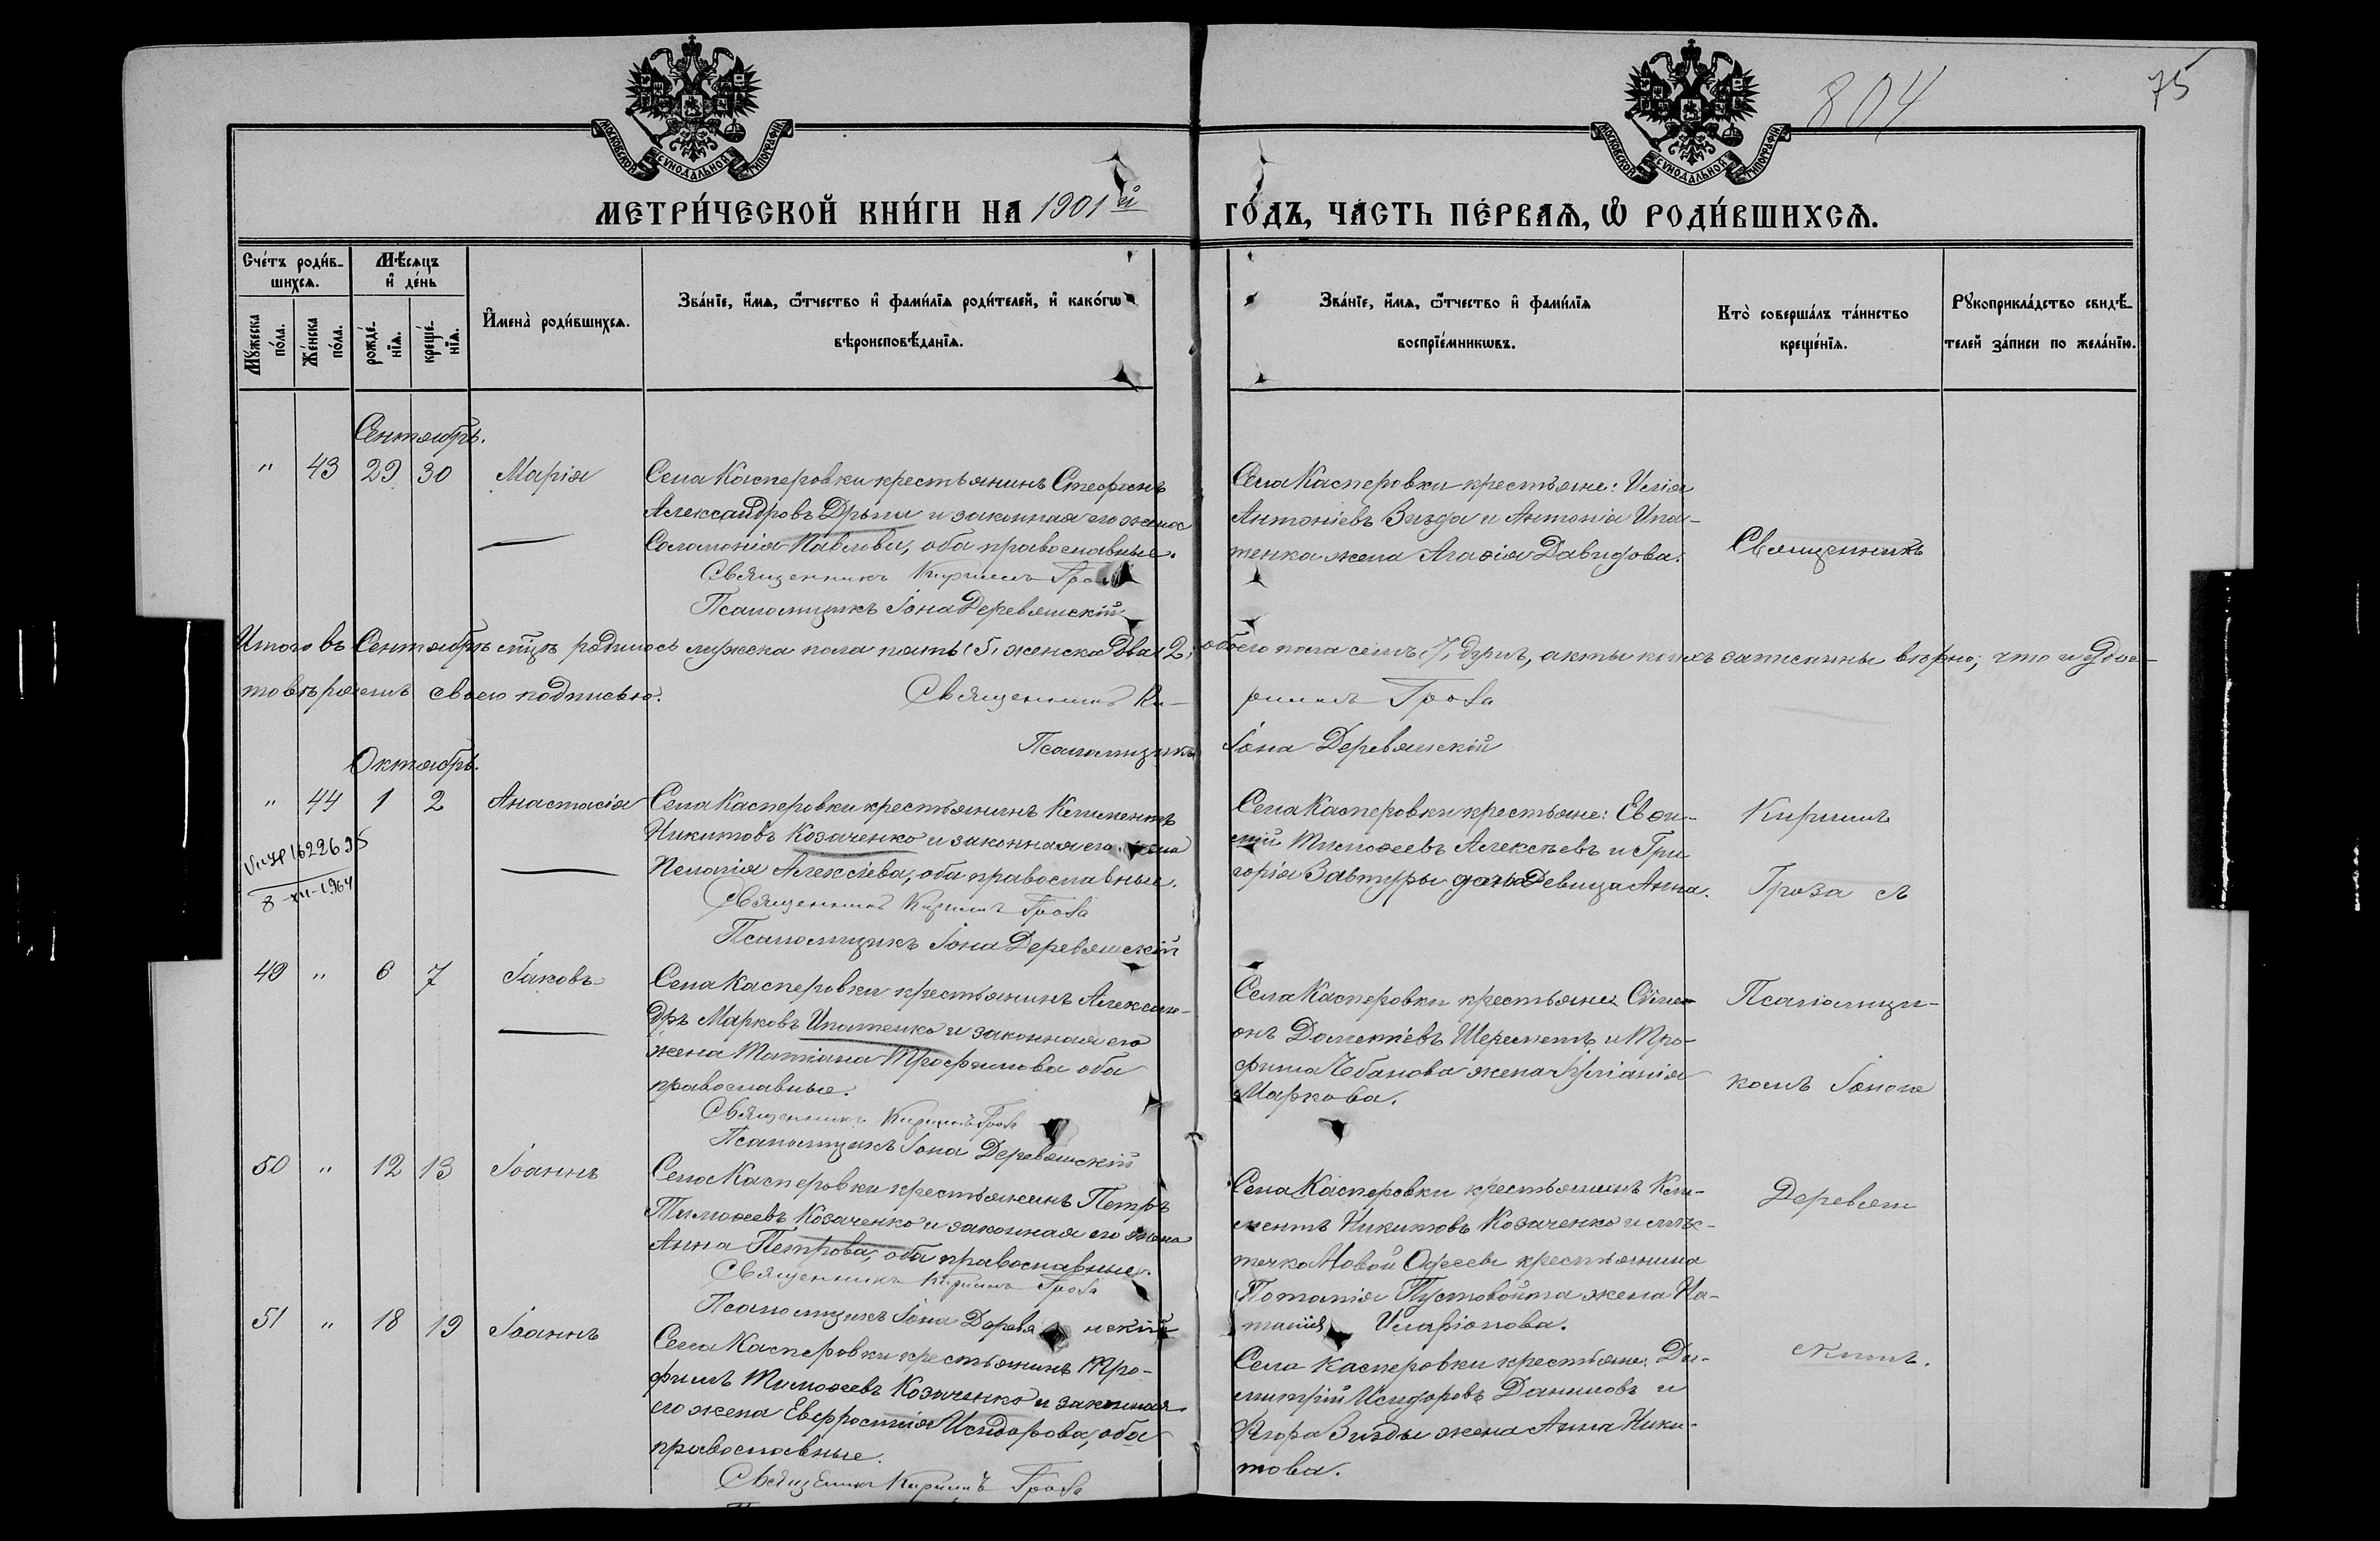 МОСКОВСКОЙ СѴНОДАЛЬНОЙ ТИПОГРАФІИ
МОСКОВСКОЙ СѴНОДАЛЬНОЙ ТИПОГРАФІИ
804
75
МЕТРИ́ЧЕСКОЙ КНИ́ГИ НА 1901й
ГО́ДЪ, ЧА́СТЬ ПЕ́РВАѦ, Ѽ РОДИ́ВШИХСѦ.
Сче́тъ роди́в-
шихсѧ.
Мѣ́сѧцъ
и҆ де́нь
Мꙋ́жеска
по́ла.
Же́нска
по́ла.
рожде́-
нїѧ.
креще́-
нїѧ.
И҆мена̀ роди́вшихсѧ.
Зва́нїе, и҆́мѧ, ѻ҆́тчество и҆ фами́лїѧ роди́телей, и҆ како́гѡ
вѣроисповѣ́данїѧ.
Зва́нїе, и҆́мѧ, ѻ҆́тчество и҆ фами́лїѧ
воспрїе́мникѡвъ.
Кто̀ соверша́лъ та́инство
креще́нїѧ.
Рꙋкоприкла́дство свидѣ́-
телей за́писи по жела́нїю.
Сентябрь.
" 43 29 30 Марія
Села Касперовки крестьянинъ Стефанъ
Александровъ Дрыга и законная его жена
Соломонія Павлова, оба православные.
Священникъ Кириллъ Гроза
Псаломщикъ Іона Деревянскій
Села Касперовки крестьяне: Илія
Антоніевъ Визда и Антонія Ипа-
тенка жена Агаѳія Давидова.
Священникъ
Итого въ Сентябрѣ мцѣ родилось мужеска пола пять (5, женска два (2, обоего пола семь, 7, душъ, акты коихъ записаны вѣрно, что и удос-
товѣряемъ своею подписью.
Священникъ Ки-
риллъ Гроза
Псаломщикъ Іона Деревянскій
Октябрь.
" 44 1 2 Анастасія
1622695
8-XII-1964
Села Касперовки крестьянинъ Климентъ
Никитовъ Козаченко и законная его жена
Пелагія Алексіева, оба православные.
Священникъ Кириллъ Гроза
Псаломщикъ Іона Деревянскій
Села Касперовки крестьяне: Евѳи-
мій Тимоѳеевъ Алексѣевъ и Гри-
горія Завтуры дочь девица Анна.
Кириллъ
Гроза съ
49 " 6 7 Іаковъ
Села Касперовки крестьянинъ Алексан-
дръ Марковъ Ипатенко и законная его
жена Татіана Трофимова оба
православные.
Священникъ Кириллъ Гроза
Псаломщикъ Іона Деревянскій
Села Касперовки крестьяне Симе-
онъ Дометіевъ Шереметъ и Тро-
фима Чабанова жена Іуліанія
Маркова.
Псаломщи-
комъ Іоною
50 " 12 13 Іоаннъ
Села Касперовки крестьянинъ Петръ
Тимоѳеевъ Козаченко и законная его жена
Анна Петрова, оба православные.
Священникъ Кириллъ Гроза
Псаломщикъ Іона Деревянскій
Села Касперовки крестьянинъ Кли-
ментъ Никитовъ Козаченко и мѣс-
течка Новой Одессы крестьянина
Потапія Пустовойта жена На-
талія Иларіонова.
Деревян
51 " 18 19 Іоаннъ
Села Касперовки крестьянинъ Тро-
фимъ Тимоѳеевъ Козаченко и законная
его жена Евфросинія Исидорова, оба
православные.
Священникъ Кириллъ Гроза
Села Касперовки крестьяне: Ди-
митрій Исидоровъ Даниловъ и
Егора Визды жена Анна Ники-
това.
скимъ.